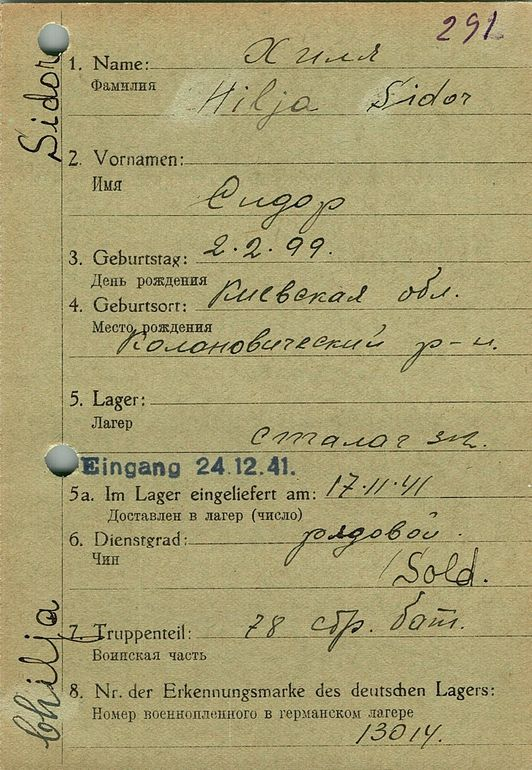 291
1. Name: Хиля
Фамилия
Hilja Sidor
2. Vornamen:
Имя
Сидор
3. Geburtstag: 2.2.99.
День рождения
4. Geburtsort: Киевская обл.
Место рождения
р-н.
5. Lager:
Лагер
сталаг
Eingang 24.12.41.
5a. Im Lager eingeliefert am: 17.11.41
Доставлен в лагер (число)
6. Dienstgrad: рядовой.
Чин
Sold.
7. Truppenteil: 78 стр. бат.
Воинская часть
8. Nr. der Erkennungsmarke des deutschen Lagers:
Номер военнопленного в германском лагере
13014.
Sidor
Chilja